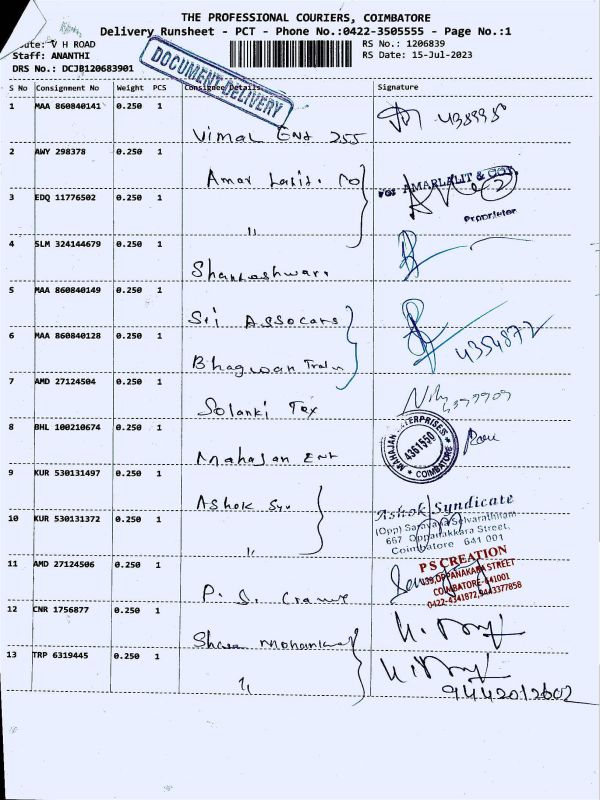 THE PROFESSIONAL COURIERS, COIMBATORE
Delivery Runsheet - PCT - Phone No.:0422-3505555 - Page No.:1
ute: V H ROAD
RS No.: 1206839
Staff: ANANTHI
RS Date: 15-Jul-2023
DRS No.: DCJB120683901
DOCUMENT DELIVERY
S No Consignment No Weight PCS Consignee Details Signature
1 MAA 860840141 0.250 1 Vimal Ent 255 438995
2 AWY 298378 0.250 1 Amar Lalit. Co
For AMARLALIT & CO.
Proprietor
3 EDQ 11776502 0.250 1 "
4 SLM 324144679 0.250 1 Shankeshwar
5 MAA 860840149 0.250 1 Sri Assocats
4354872
6 MAA 860840128 0.250 1 Bhagwan
7 AMD 27124504 0.250 1 Solanki Tex
8 BHL 100210674 0.250 1 Mahajan Ent
MAHAJAN ENTERPRISES
4361550
COIMBATORE
9 KUR 530131497 0.250 1 Ashok Sy.
Ashok Syndicate
(Opp) Saravana Selvarathinam
667 Oppanakkara Street,
Coimbatore 641 001
10 KUR 530131372 0.250 1 "
11 AMD 27124506 0.250 1 P. S.
P S CREATION
139, OPPANAKARA STREET
COIMBATORE-641001
0422-4341872, 9443377858
12 CNR 1756877 0.250 1
13 TRP 6319445 0.250 1 "
9442012602